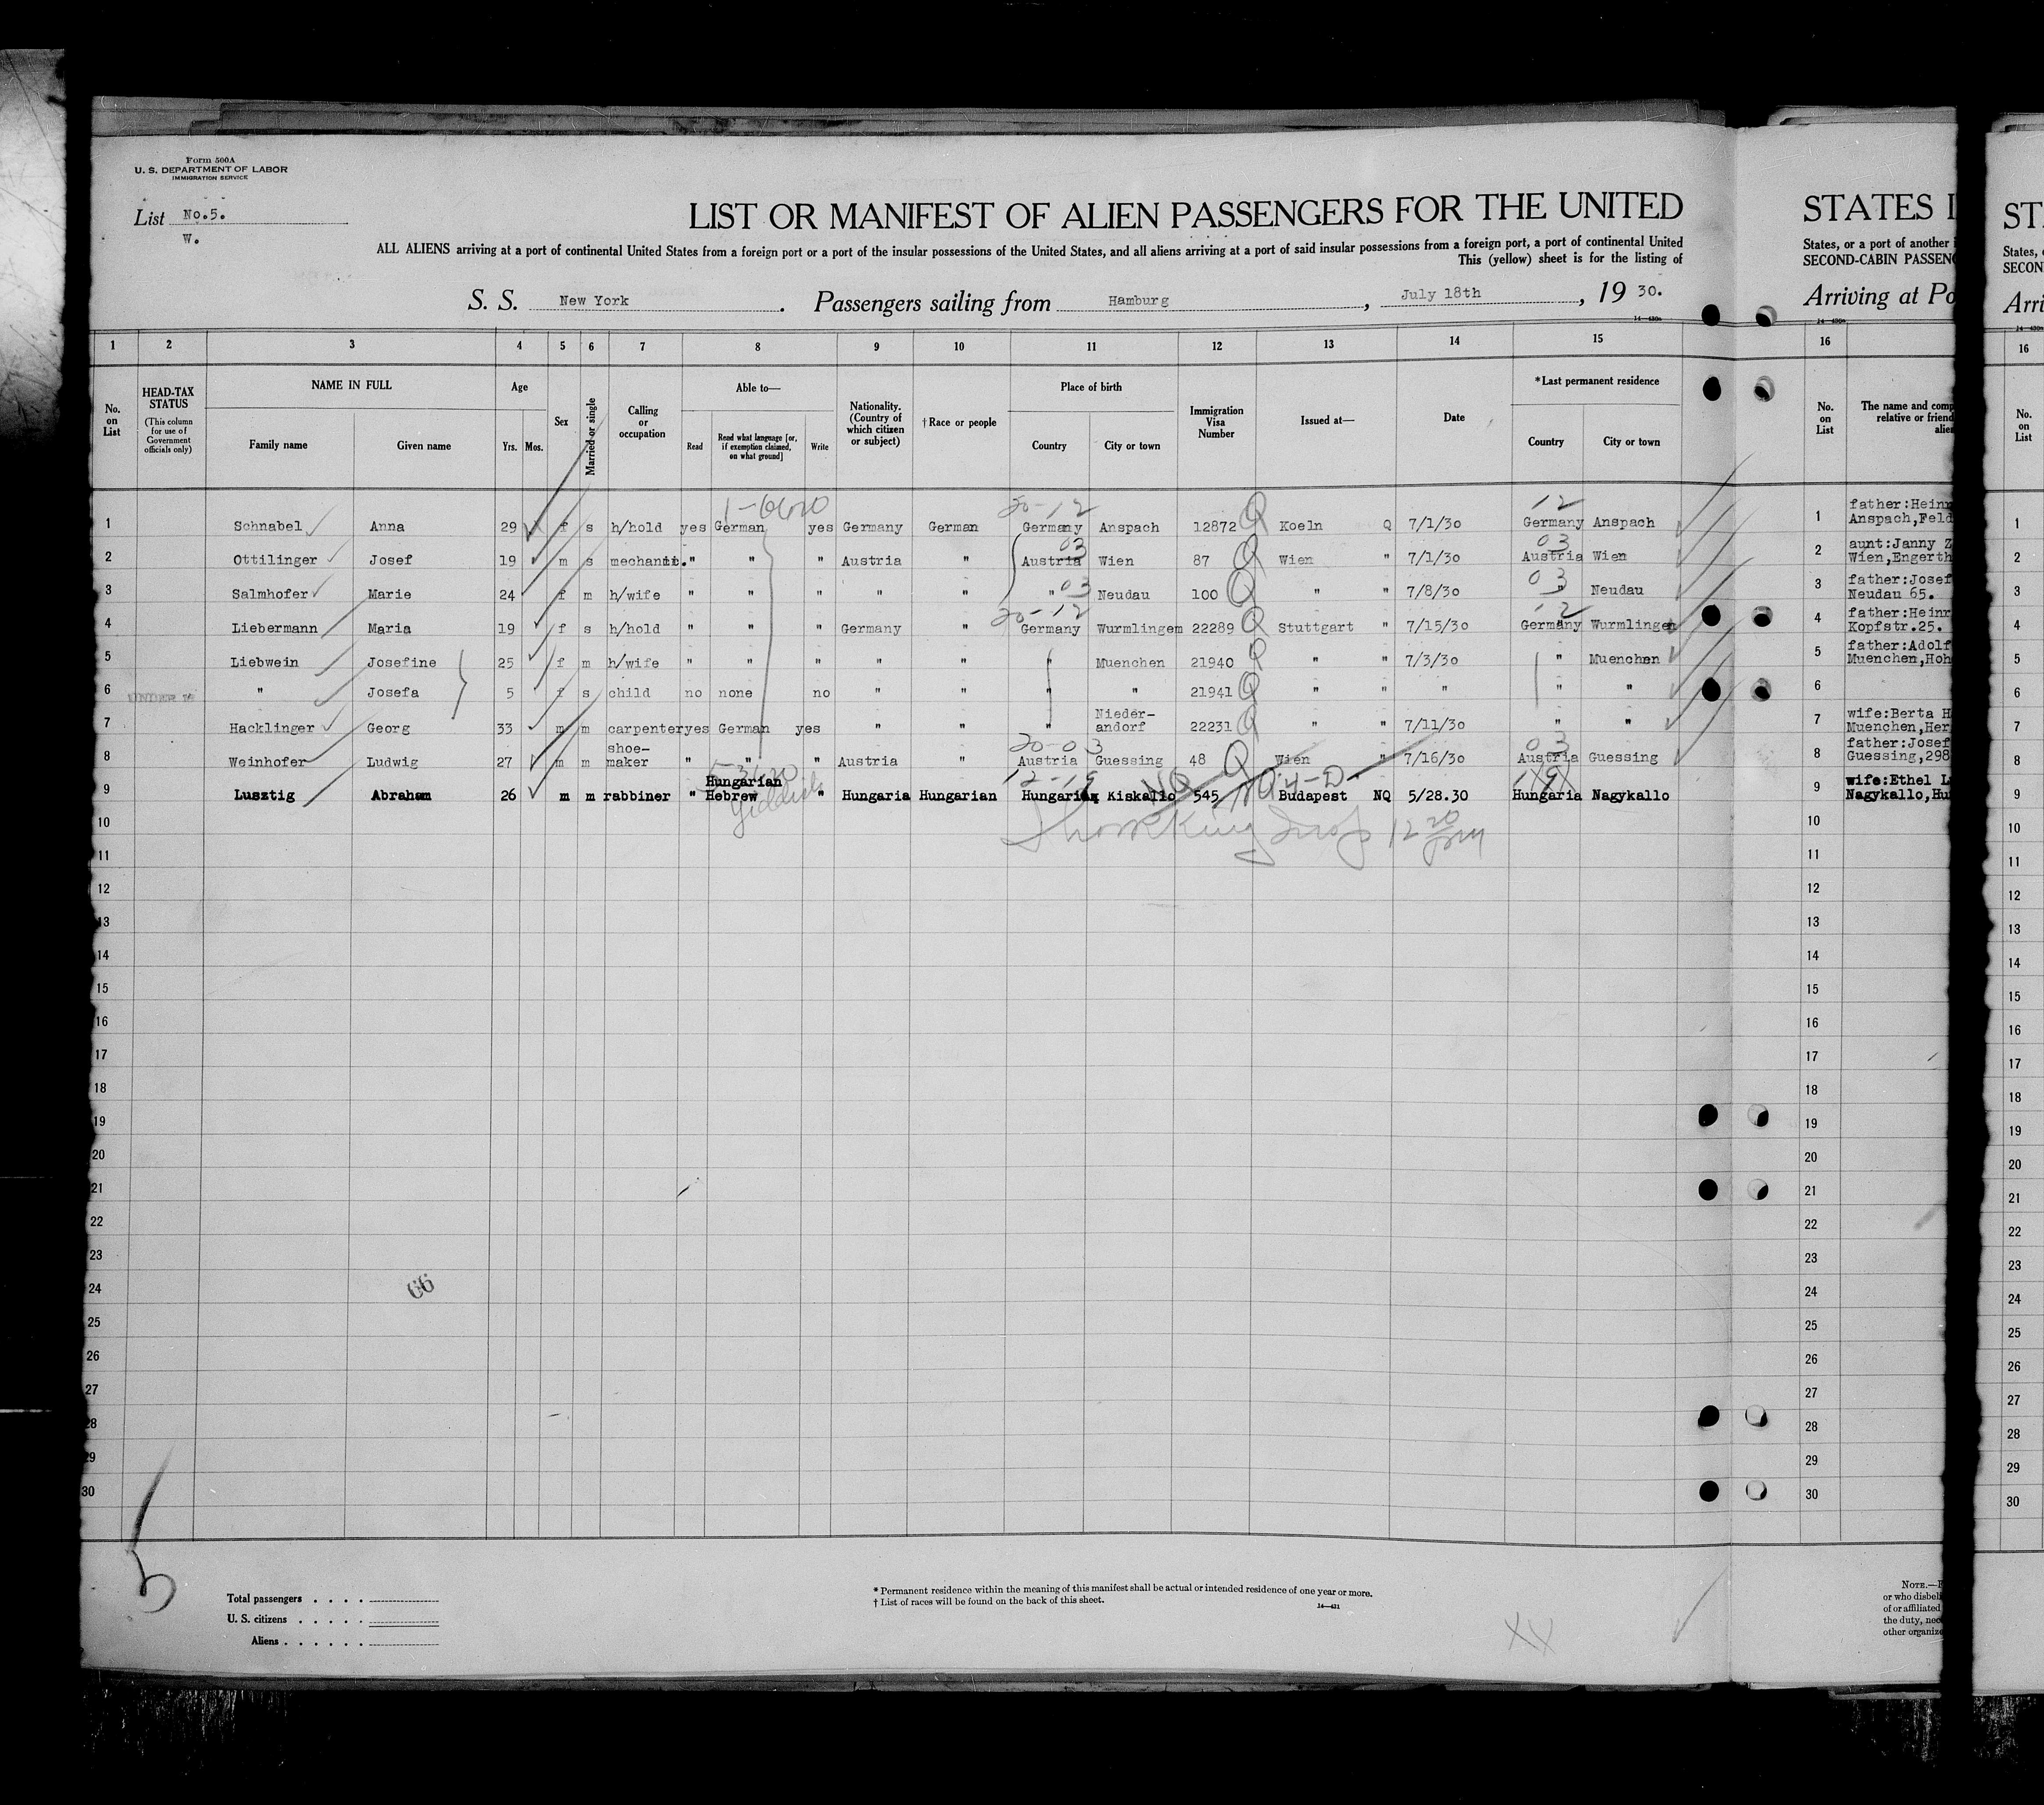 Form 500A
U. S. DEPARTMENT OF LABOR
IMMIGRATION SERVICE
List No.5.
W.
LIST OR MANIFEST OF ALIEN PASSENGERS FOR THE UNITED
ALL ALIENS arriving at a port of continental United States from a foreign port or a port of the insular possessions of the United States, and all aliens arriving at a port of said insular possessions from a foreign port, a port of continental United
This (yellow) sheet is for the listing of
S. S. New York . Passengers sailing from Hamburg , July 18th , 19 30.
1 2 3 4 5 6 7 8 9 10 11 12 13 14 15
No. on List
HEAD-TAX STATUS (This column for use of Government officials only)
NAME IN FULL
Family name Given name
Age
Yrs. Mos.
Sex
Married or single
Calling or occupation
Able to—
Read Read what language [or, if exemption claimed, on what ground] Write
Nationality. (Country of which citizen or subject)
† Race or people
Place of birth
Country City or town
Immigration Visa Number
Issued at—
Date
* Last permanent residence
Country City or town
1-6620 20-12 12
1 Schnabel Anna 29 f s h/hold yes German yes Germany German Germany Anspach 12872 Q Koeln Q 7/1/30 Germany Anspach
03 03
2 Ottilinger Josef 19 m s mechanic. " " " Austria " Austria Wien 87 Q Wien " 7/1/30 Austria Wien
03 03
3 Salmhofer Marie 24 f m h/wife " " " " " " Neudau 100 Q " " 7/8/30 Neudau
20-12 12
4 Liebermann Maria 19 f s h/hold " " " Germany " Germany Wurmlingem 22289 Q Stuttgart " 7/15/30 Germany Wurmlingen
5 Liebwein Josefine 25 f m h/wife " " " " " " Muenchen 21940 Q " " 7/3/30 " Muenchen
6 " Josefa 5 f s child no none no " " " " 21941 Q " " " " "
7 Hacklinger Georg 33 m m carpenter yes German yes " " " Nieder-andorf 22231 Q " " 7/11/30 " "
20-03 03
8 Weinhofer Ludwig 27 m m shoe-maker " " " Austria " Austria Guessing 48 Q Wien " 7/16/30 Austria Guessing
12-19 NQ 19
9 Lusztig Abraham 26 m m rabbiner " Hungarian Hebrew " Hungaria Hungarian Hungaria Kiskallo 545 Budapest NQ 5/28.30 Hungaria Nagykallo
Yiddish
10
11
12
13
14
15
16
17
18
19
20
21
22
23
24
25
26
27
28
29
30
66
5
Total passengers . . . .
U. S. citizens . . . . .
Aliens . . . . . .
* Permanent residence within the meaning of this manifest shall be actual or intended residence of one year or more.
† List of races will be found on the back of this sheet.
14—431
XX
STATES I
States, or a port of another
SECOND-CABIN PASSENG
Arriving at Po
16
No. on List
The name and comp
relative or friend
alie
1 father:Heinr
Anspach,Feld
2 aunt:Janny Z
Wien,Engerth
3 father:Josef
Neudau 65.
4 father:Heinr
Kopfstr.25.
5 father:Adolf
Muenchen,Hoh
6
7 wife:Berta H
Muenchen,Her
8 father:Josef
Guessing,298
9 wife:Ethel L
Nagykallo,Hu
10
11
12
13
14
15
16
17
18
19
20
21
22
23
24
25
26
27
28
29
30
NOTE.—
or who disbel
of or affiliated
the duty, nec
other organiz
ST
States,
SECON
Arri
16
No. on List
1
2
3
4
5
6
7
8
9
10
11
12
13
14
15
16
17
18
19
20
21
22
23
24
25
26
27
28
29
30